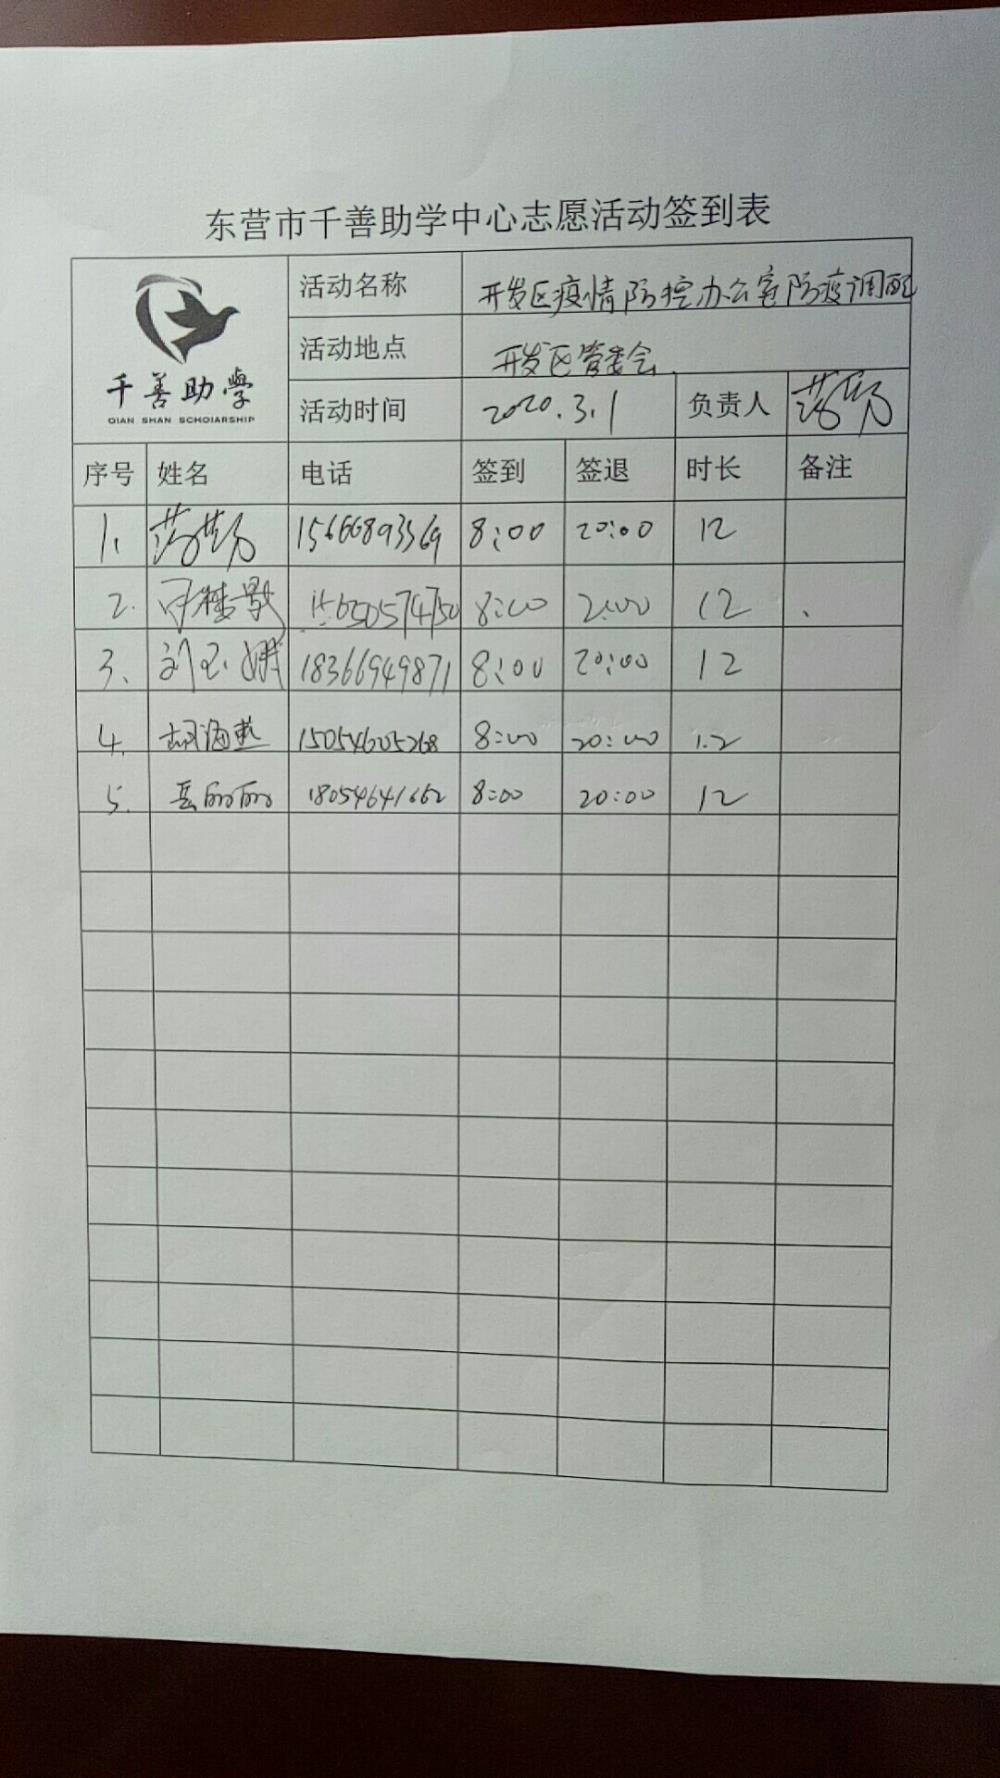 东营市千善助学中心志愿活动签到表
千善助學
QIAN SHAN SCHOIARSHIP
活动名称 开发区疫情防控办公室防疫调配
活动地点 开发区管委会
活动时间 2020.3.1 负责人
序号 姓名 电话 签到 签退 时长 备注
1. 15666893369 8:00 20:00 12
2. 15650574750 8:00 2:00 12
3. 刘玉娥 18366949871 8:00 20:00 12
4. 胡海燕 15054605268 8:00 20:00 12
5. 岳丽丽 18054641662 8:00 20:00 12